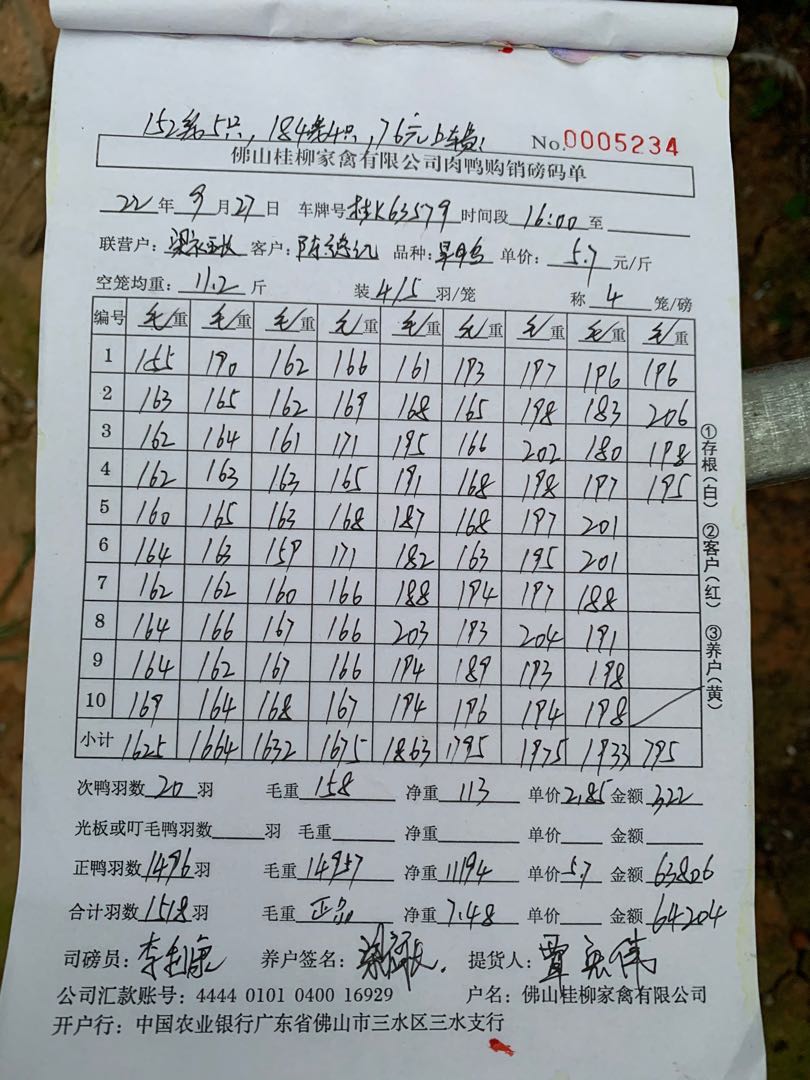 152笼5只，184笼4只，76元上车费，
No.0005234
佛山桂柳家禽有限公司肉鸭购销磅码单
22年9月27日 车牌号桂K63579 时间段16:00至
联营户： 客户：陈德 品种： 单价：5.7元/斤
空笼均重：11.2斤 装4/5羽/笼 称4笼/磅
编号 毛重 毛重 毛重 毛重 毛重 毛重 毛重 毛重 毛重
1 155 190 162 166 161 193 197 196 196
2 163 165 162 169 168 165 198 183 206
3 162 164 161 171 195 166 202 180 198
4 162 163 163 165 191 168 198 197 195
5 160 165 163 168 187 168 197 201
6 164 163 159 171 182 163 195 201
7 162 162 160 166 188 194 197 188
8 164 166 167 166 203 193 204 191
9 164 162 167 166 194 189 193 198
10 169 164 168 167 194 196 194 198
小计 1625 1664 1632 1675 1863 1795 1975 1933 795
①存根（白） ②客户（红） ③养户（黄）
次鸭羽数20羽 毛重158 净重113 单价2.85 金额322
光板或叮毛鸭羽数 羽 毛重 净重 单价 金额
正鸭羽数1496羽 毛重14957 净重11194 单价5.7 金额63806
合计羽数1518羽 毛重正品 净重7.48 单价 金额64204
司磅员：李 康 养户签名： 提货人：覃 伟
公司汇款账号：4444 0101 0400 16929 户名：佛山桂柳家禽有限公司
开户行：中国农业银行广东省佛山市三水区三水支行